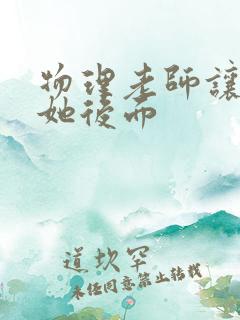 物理老師讓
她後面
道坎罕
未经同意禁止转载